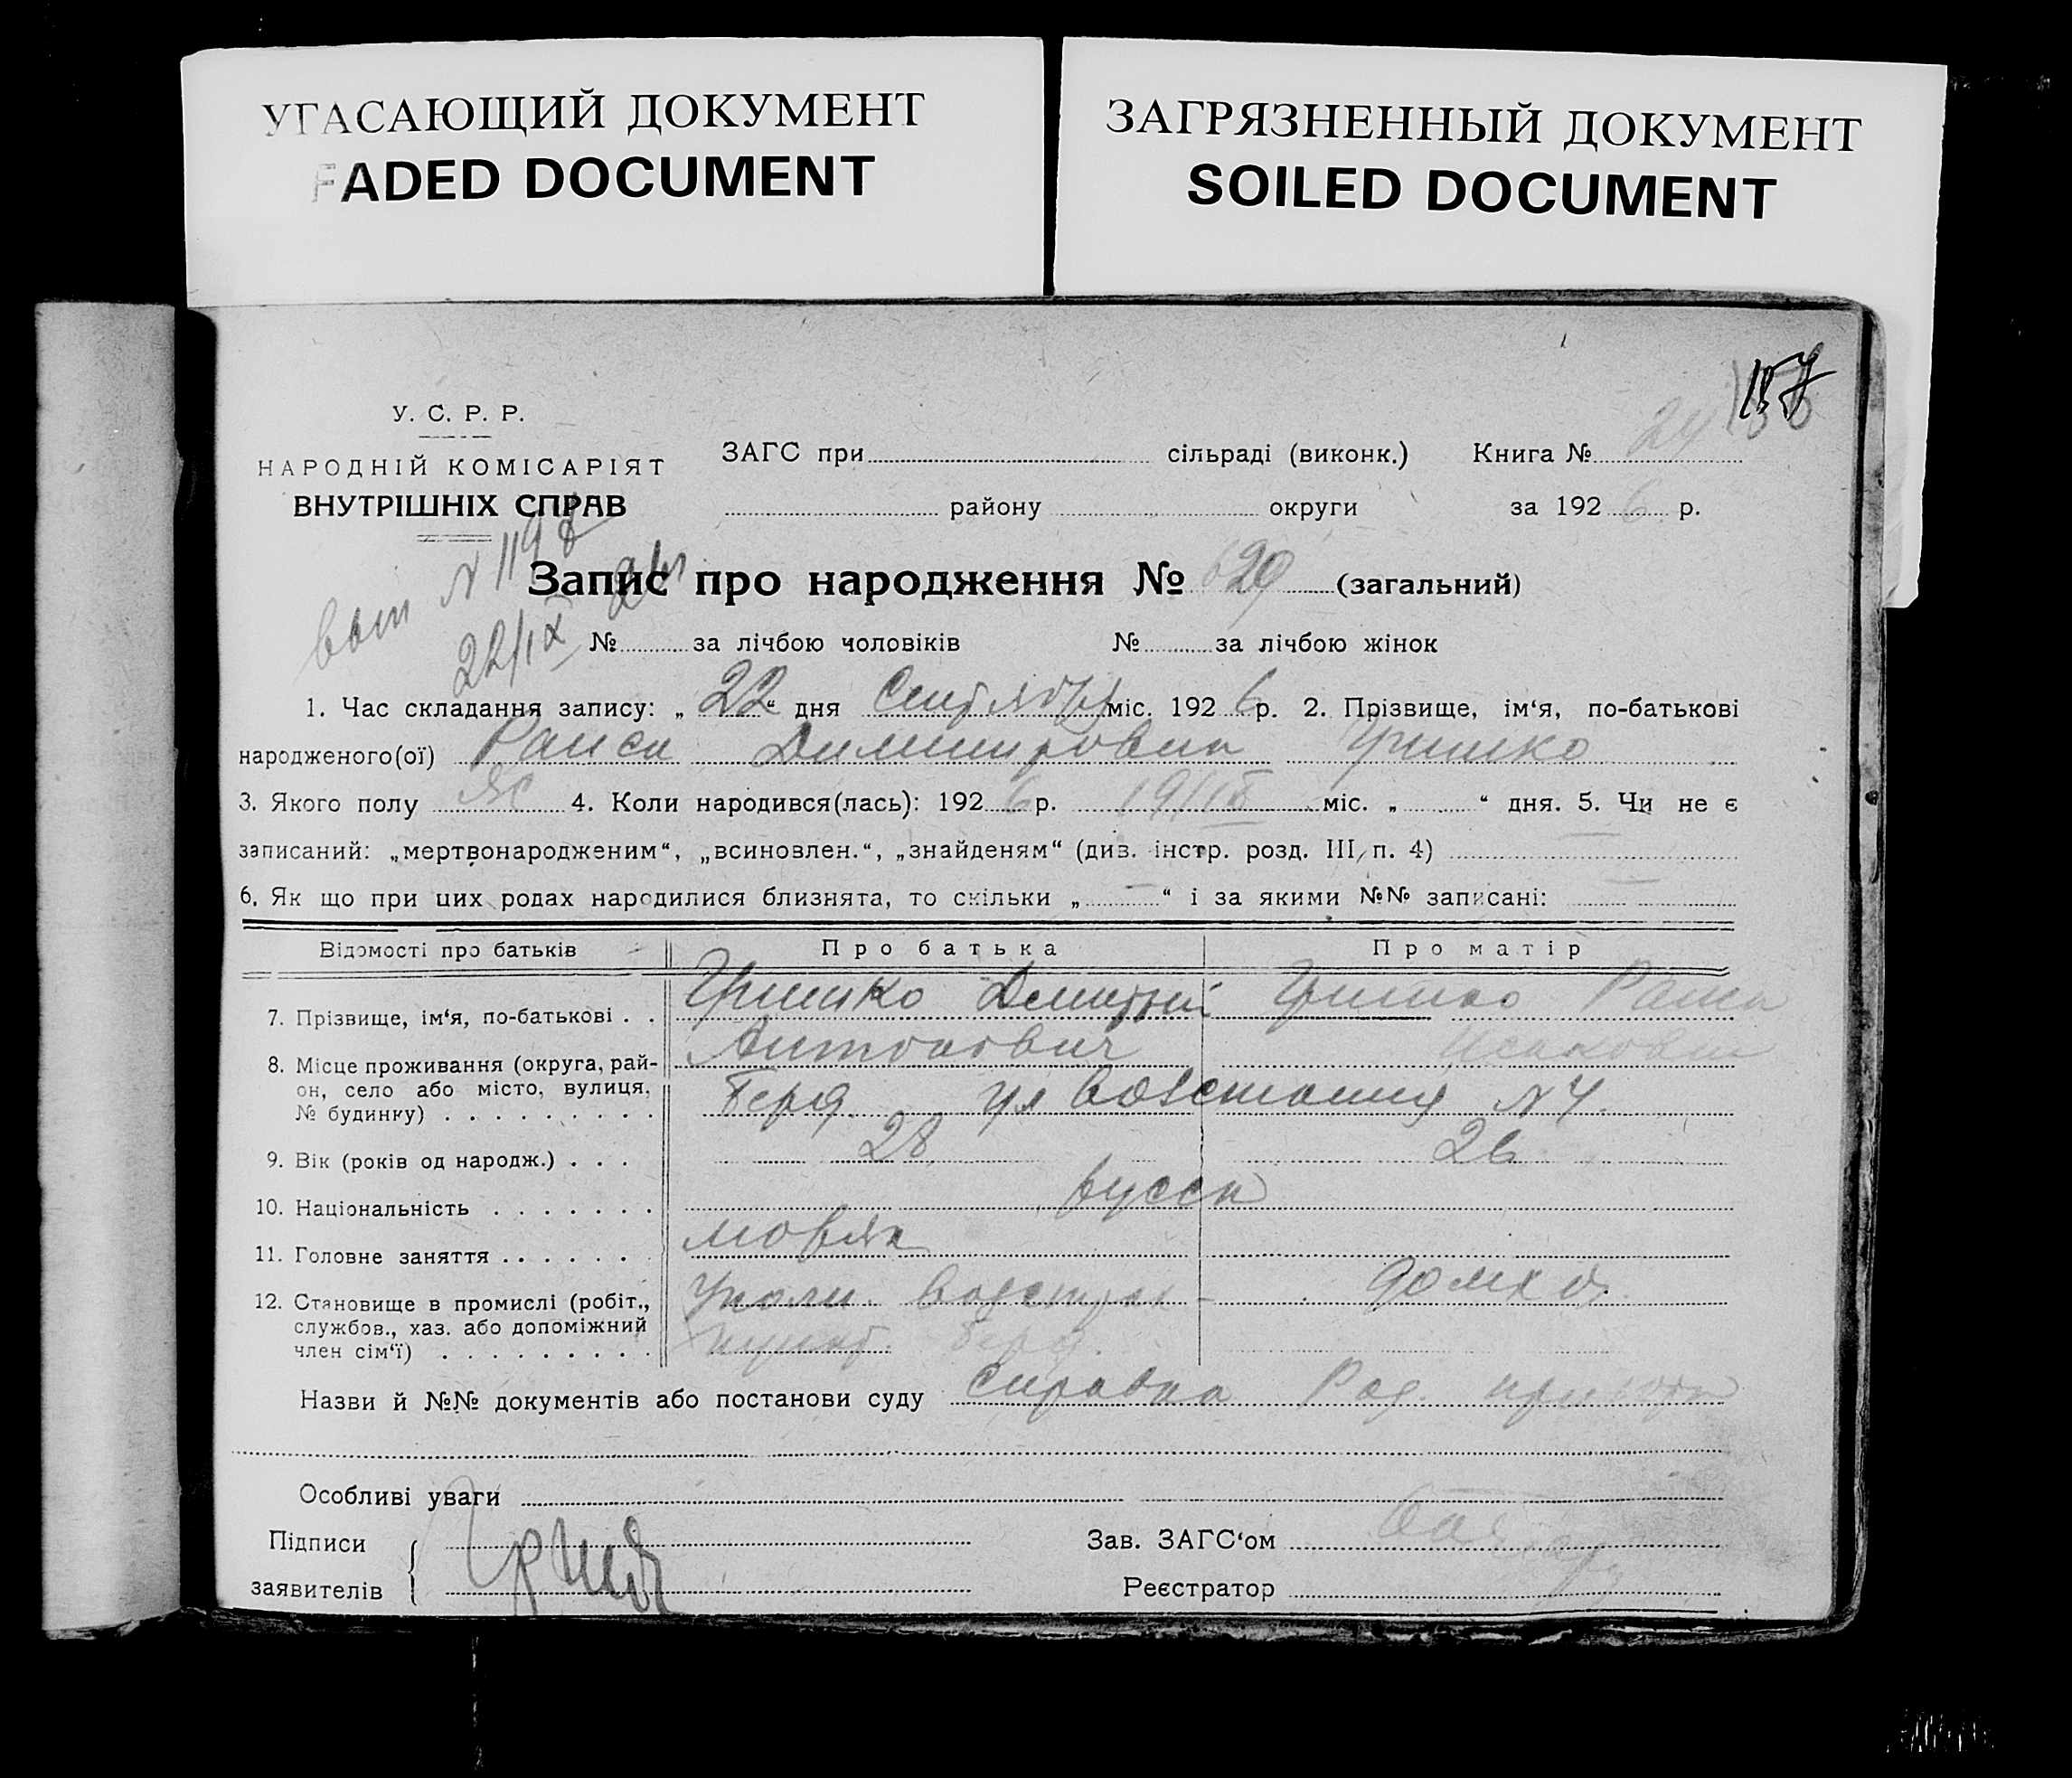 УГАСАЮЩИЙ ДОКУМЕНТ
FADED DOCUMENT
ЗАГРЯЗНЕННЫЙ ДОКУМЕНТ
SOILED DOCUMENT
157
У. С. Р. Р.
НАРОДНІЙ КОМІСАРІЯТ
ВНУТРІШНІХ СПРАВ
ЗАГС при сільраді (виконк.) Книга № 24
району округи за 192 6 р.
N 119
22/IX
Запис про народження № 629 (загальний)
№ за лічбою чоловіків № за лічбою жінок
1. Час складання запису: „ 22 “ дня Сентября міс. 192 6 р. 2. Прізвище, ім‘я, по-батькові
народженого(ої) Раиса Димитровна Гришко
3. Якого полу ж 4. Коли народився(лась): 192 6 р. 19/IX міс. „ “ дня. 5. Чи не є
записаний: „мертвонародженим“, „всиновлен.“, „знайденям“ (див. інстр. розд. III, п. 4)
6. Як що при цих родах народилися близнята, то скільки „ — “ і за якими №№ записані: —
Відомості про батьків Про батька Про матір
7. Прізвище, ім‘я, по-батькові . . Гришко Дмитрий Гришко Раиса
Антонович Исаковна
8. Місце проживання (округа, рай-
он, село або місто, вулиця,
№ будинку) . . . . . . . . . Берд. ул Восстания N 4.
9. Вік (років од народж.) . . . 28 26
10. Національність . . . . . . . русск
11. Головне заняття . . . . . . моряк
12. Становище в промислі (робіт.,
службов., хаз. або допоміжний
член сім‘ї) . . . . . . . . . домх
Берд.
Назви й №№ документів або постанови суду Справка Род. приюта
Особливі уваги
Підписи
заявителів
Зав. ЗАГС‘ом
Реєстратор